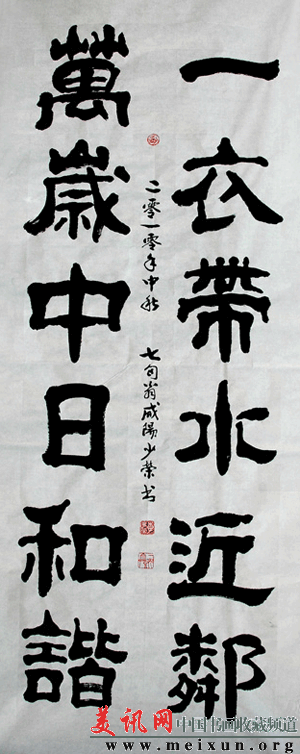 一衣帶水近鄰
萬歲中日和諧
二零一零年中秋 七旬翁咸陽少榮书
美讯网 中国书画收藏频道
www.meixun.org